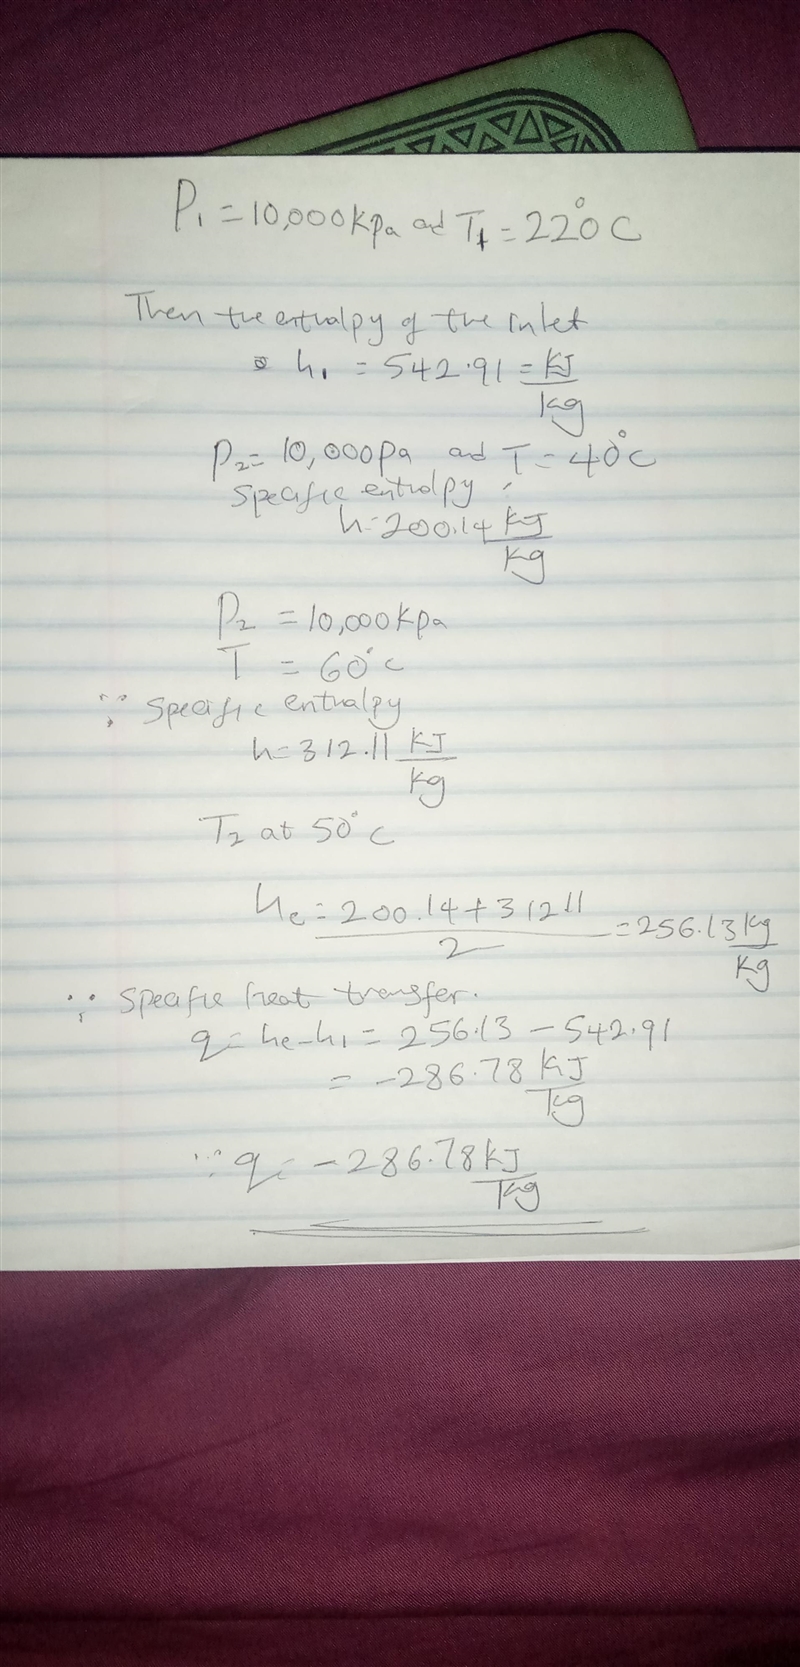 P₁ = 10,000 kpa and T₁ = 220°C
Then the enthalpy of the inlet
h₁ = 542.91 = KJ/kg
P₂ = 10,000 Pa and T = 40°C
Specific enthalpy :
h = 200.14 KJ/Kg
P₂ = 10,000 Kpa
T = 60°C
∵ Specific enthalpy
h = 312.11 KJ/Kg
T₂ at 50°C
he = (200.14 + 312 11)/2 = 256.13 Kg/Kg
∵ Specific heat transfer.
q = he - h₁ = 256.13 - 542.91
= -286.78 KJ/Kg
∵ q = -286.78 KJ/Kg